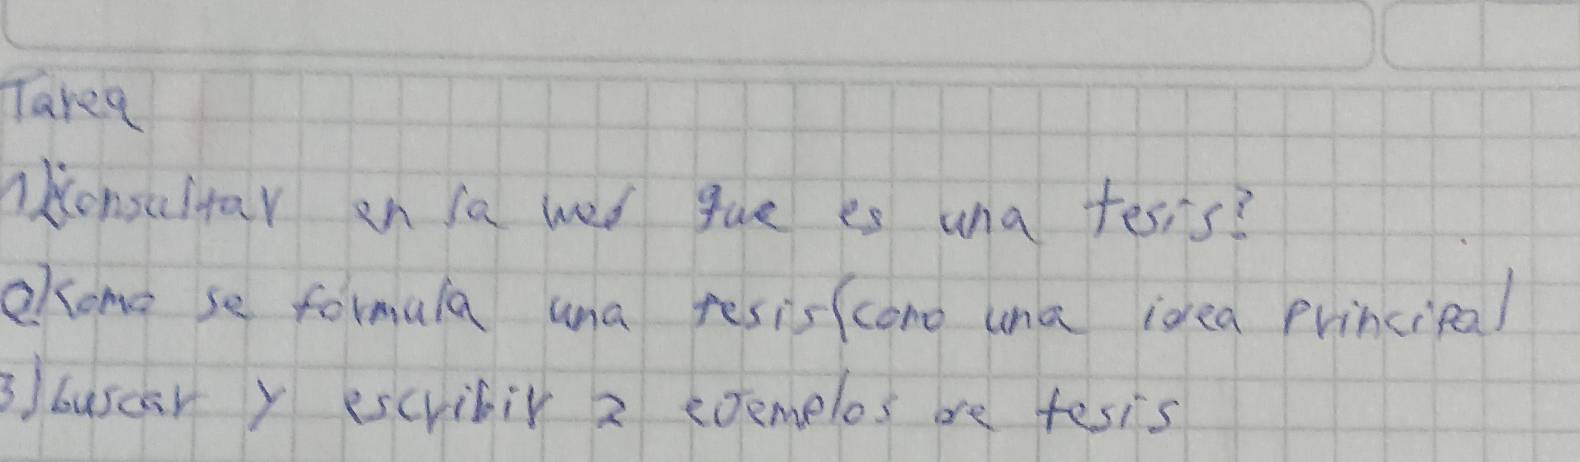 Tarea
1) Consultar en la wed que es una tesis?
2) Como se formula una tesis (como una idea principal
3) buscar y escribir 2 eJemplos de tesis